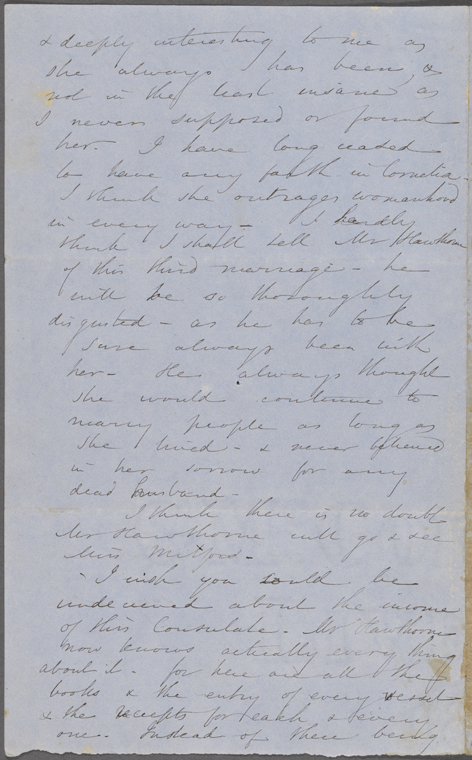 & deeply interesting to me as
she always has been, &
not in the least insane as
I never supposed or found
her - I have long ceased
to have any faith in Cornelia -
I think she outrages womanhood
in every way - I hardly
think I shall tell Mr Hawthorne
of this third marriage - he
will be so thoroughly
disgusted - as he has to be
sure always been with
her - He always thought
she would continue to
marry people as long as
she lived - & never believed
in her sorrow for any
dead husband -
I think there is no doubt
Mr Hawthorne will go & see
Miss Mitford -
- I wish you could be
undeceived about the income
of this Consulate. Mr Hawthorne
now knows actually every thing
about it - for here are all the
books & the entry of every vessel
& the receipts for each & every
one. Instead of there being